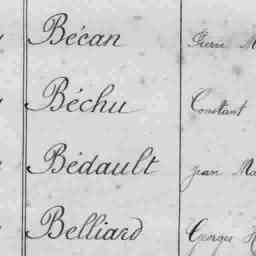 Bécan Pierre M
Béchu Constant
Bédault Jean Ma
Belliard Georges